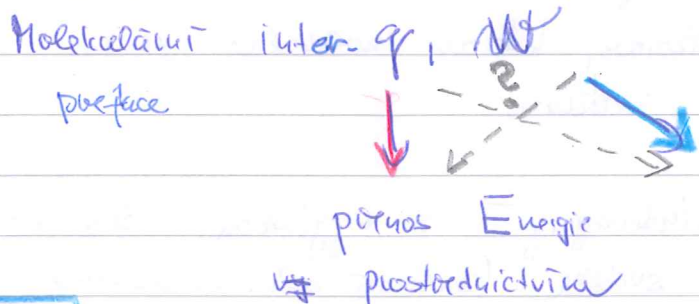 Molekulární inter- q, W
pretace
?
přenos Energie
prostřednictvím